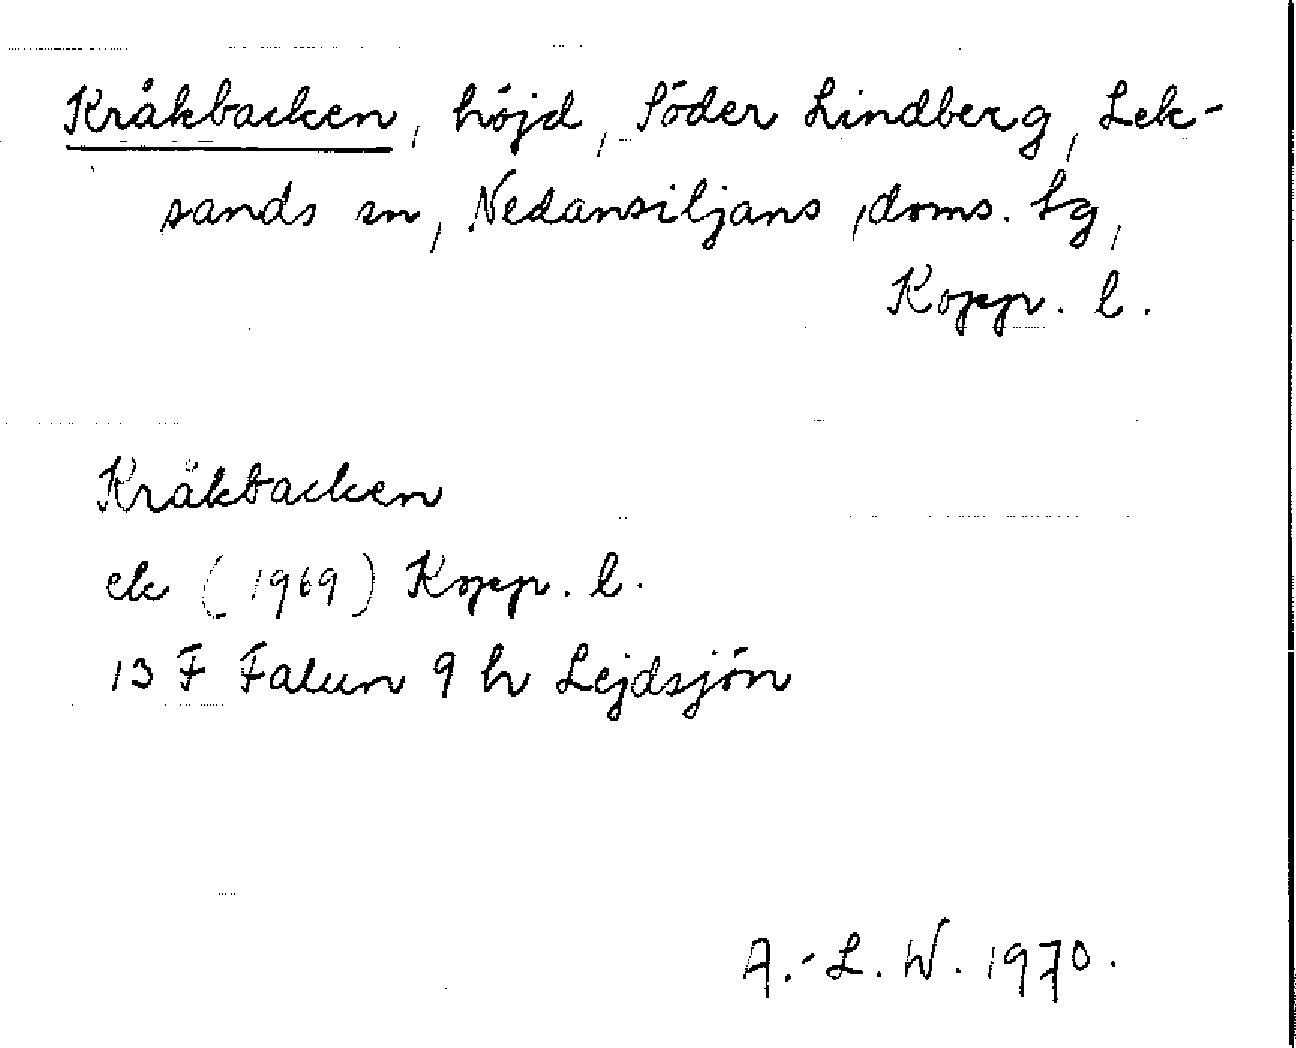 Kråkbacken, höjd, Söder Lindberg, Lek-
sands sn, Nedansiljans doms. tg,
Kopp. l.
Kråkbacken
ek (1969) Kopp. l.
13 F Falun 9 h Lejdsjön
A.-L. W. 1970.